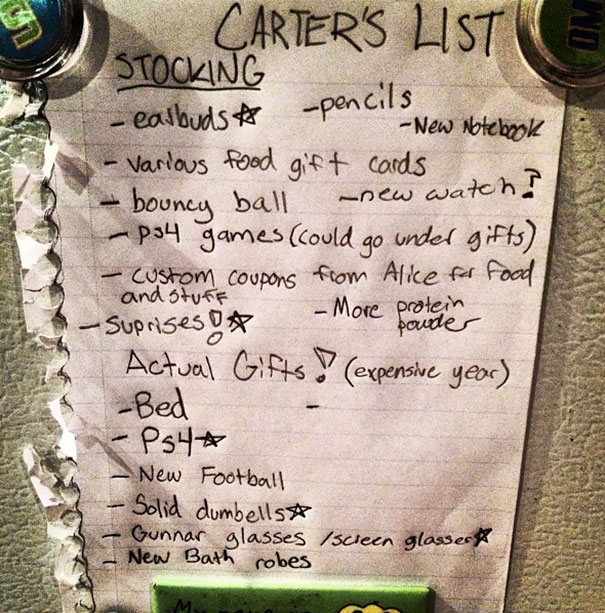 CARTER'S LIST
STOCKING
- earbuds☆ - pencils
- New Notebook
- various food gift cards
- bouncy ball - new watch!
- ps4 games (could go under gifts)
- custom coupons from Alice for food
and stuff
- More protein
powder
- suprises!☆
Actual Gifts! (expensive year)
- Bed -
- Ps4☆
- New Football
- Solid dumbells☆
- Gunnar glasses / screen glasses☆
- New Bath robes